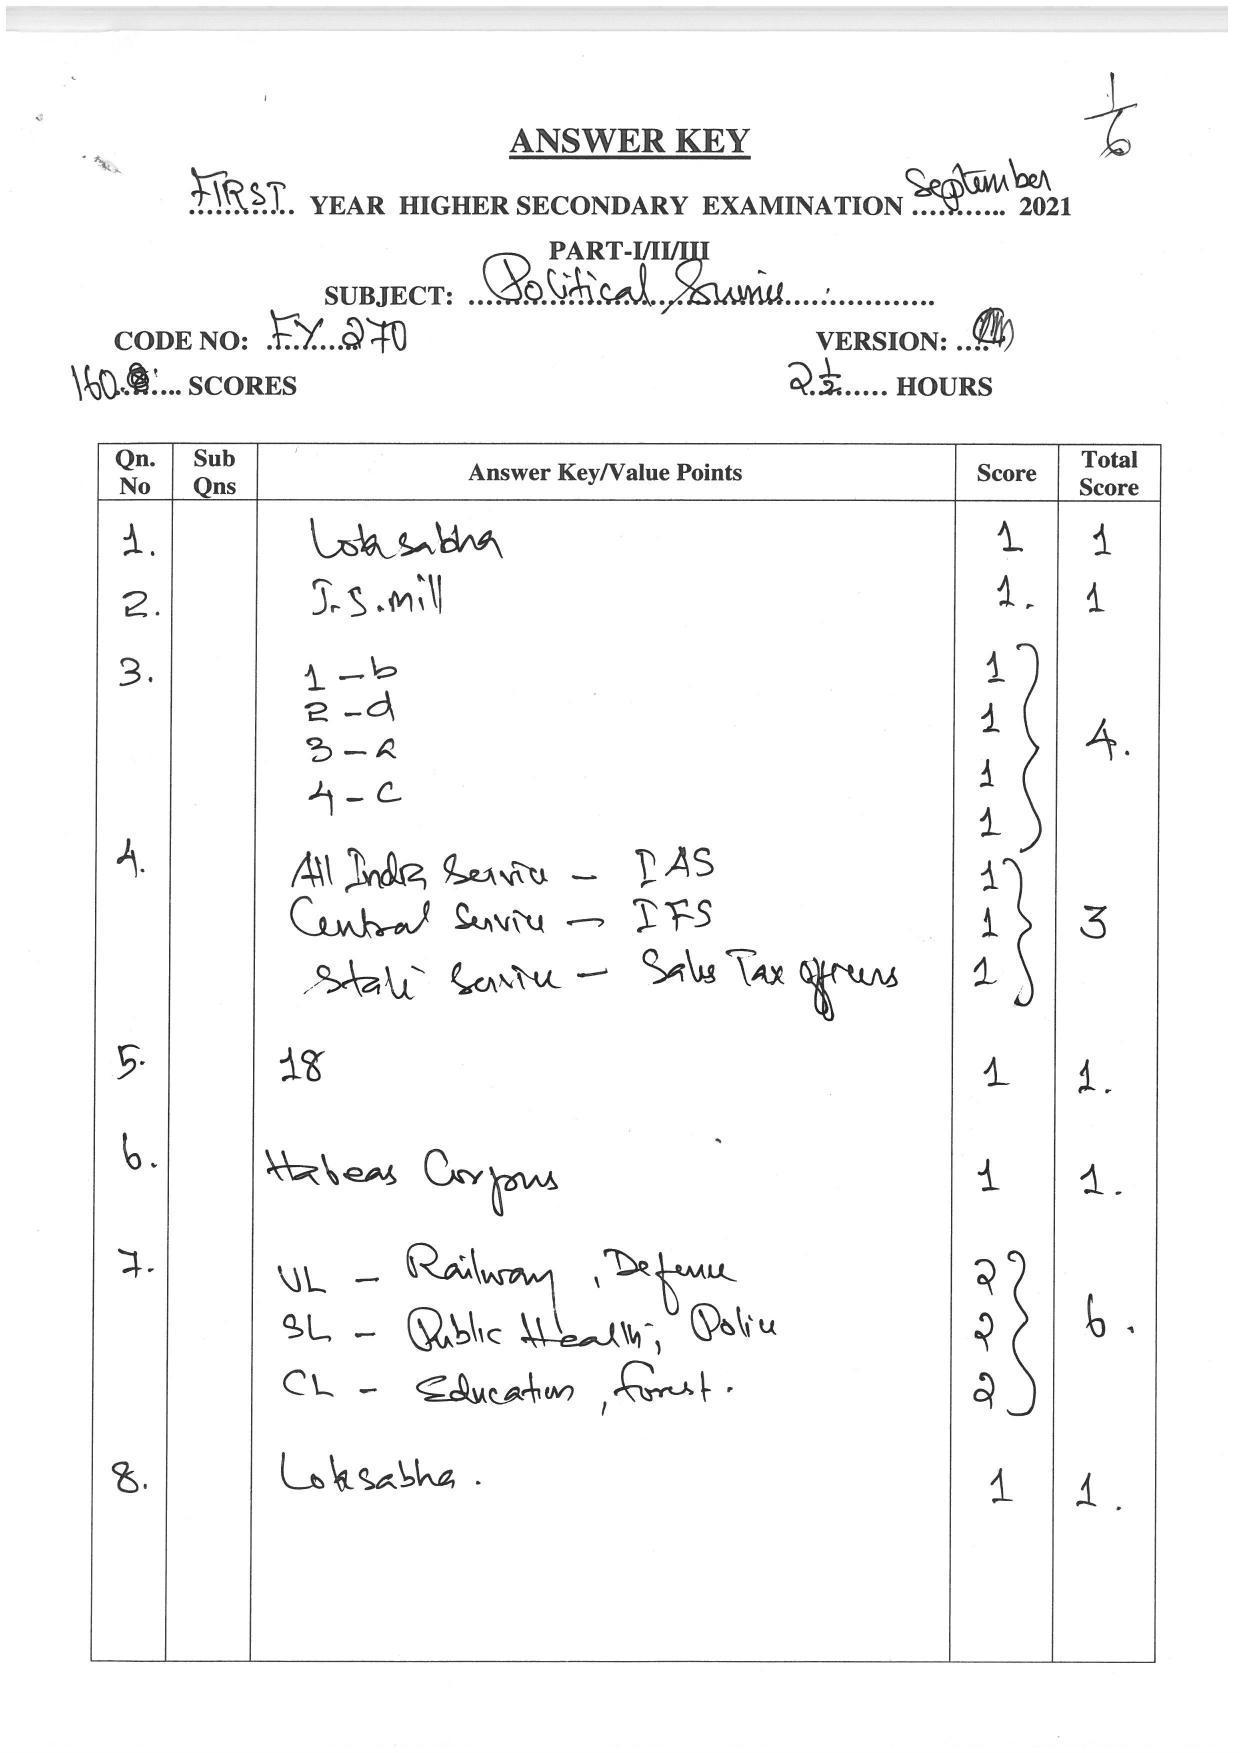 1/6
ANSWER KEY
FIRST YEAR HIGHER SECONDARY EXAMINATION September 2021
PART-I/II/III
SUBJECT: Political Science
CODE NO: FY 270 VERSION:
160 SCORES 2 1/2 HOURS
Qn. No Sub Qns Answer Key/Value Points Score Total Score
1. Loksabha 1 1
2. J.S.mill 1. 1
3. 1 – b 1
2 – d 1
3 – a 1 4.
4 – c 1
4. All India Service – IAS 1
Central Service – IFS 1 3
State Service – Sales Tax officers 1
5. 18 1 1.
6. Habeas Corpus 1 1.
7. UL – Railway, Defence 2
SL – Public Health, Police 2 6.
CL – Education, Forest. 2
8. Loksabha. 1 1.